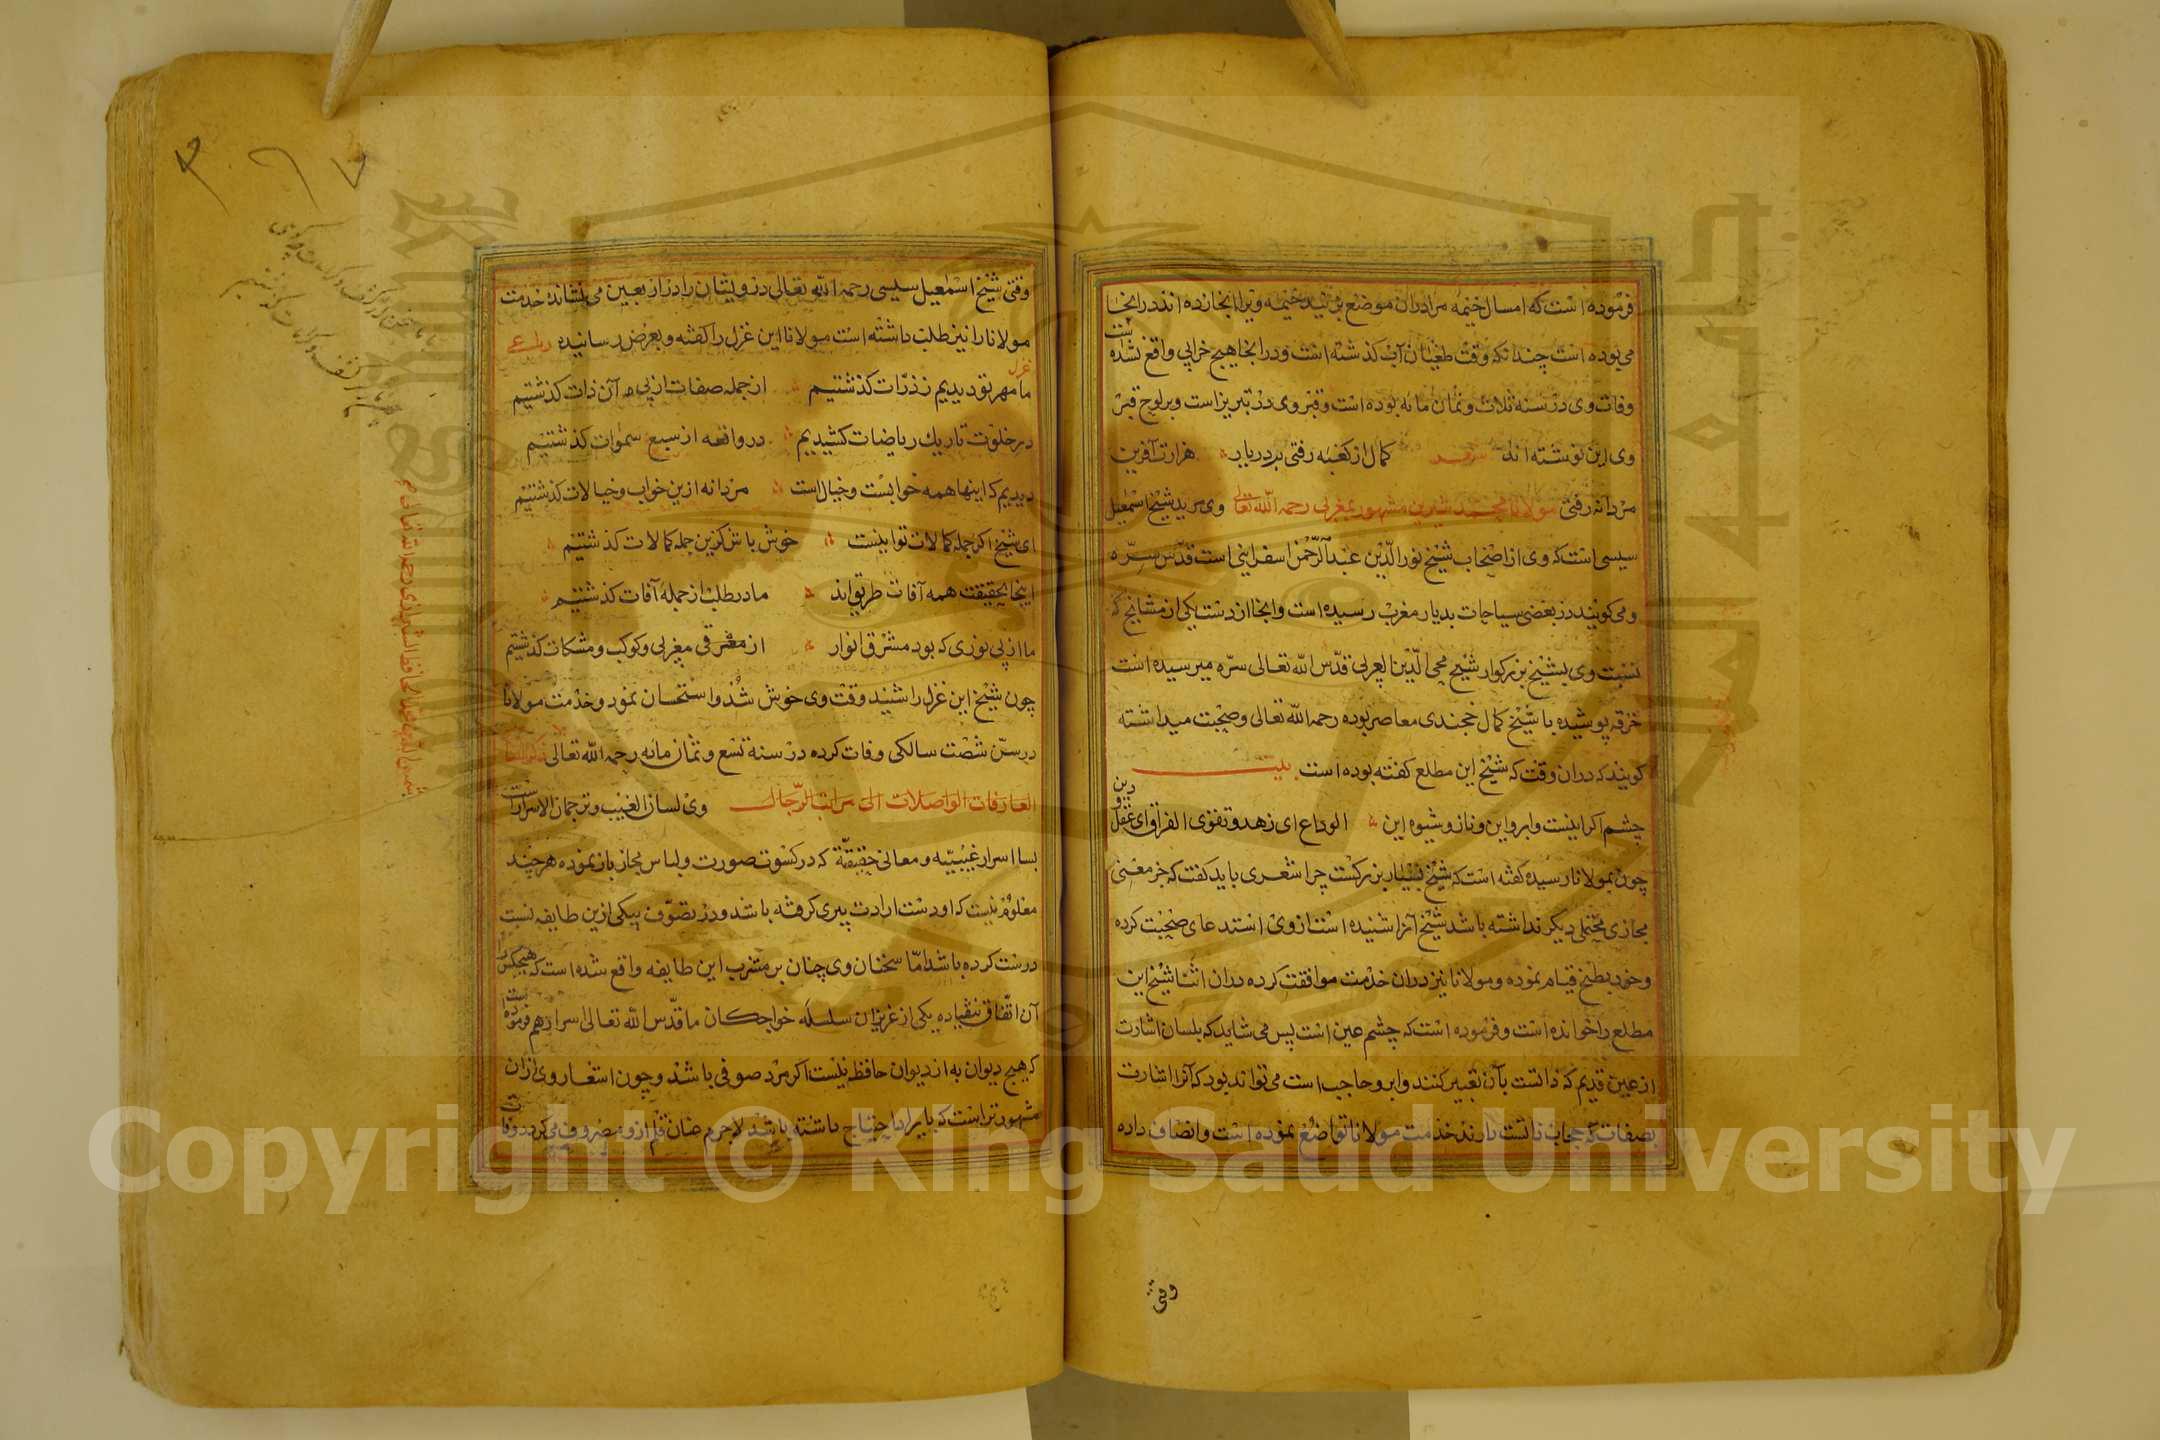 فرموده است که امسال خیمه مرا دران موضع بزنید خیمه ویرا انجا زده اند در انجا
می بوده است چندانکه وقت طغیان آب کذشته است و در انجا هیچ خرابی واقع نشده است
وفات وی در سنه ثلاث و ثمان مائه بوده است و قبر وی در تبریز است و بر لوح قبر
وی این نوشته اند کمال از کعبه رفتی بر در یار هزارت آفرین
مردانه رفتی مولانا محمد شیرین مشهور بمغربی رحمه الله تعالی وی مرید شیخ اسمعیل
سیسی است که وی از اصحاب شیخ نور الدین عبد الرحمن اسفراینی است قدس سره
و می کویند در بعضی سیاحات بدیار مغرب رسیده است وانجا از دست یکی از مشایخ که
نسبت وی بشیخ بزرکوار شیخ محی الدین العربی قدس الله تعالی سره میرسیده است
خرقه پوشیده با شیخ کمال خجندی معاصر بوده رحمه الله تعالی وصحبت میداشته
کویند که دران وقت که شیخ این مطلع کفته بوده است بیت
چشم اکر اینست وابرو این وناز وشیوه این الوداع ای زهد وتقوی الفراق ای عقل ودین
چون بمولانا رسیده کفته است که شیخ بسیار بزرکست چرا شعری باید کفت که جز معنی
مجازی محملی دیکر نداشته باشد شیخ آنرا شنیده است از وی استدعای صحبت کرده
وخود بطبخ قیام نموده ومولانا نیز دران خدمت موافقت کرده دران اثنا شیخ این
مطلع را خوانده است وفرموده است که چشم عین است پس می شاید که بلسان اشارت
از عین قدیم که ذاتست بآن تعبیر کنند وابرو حاجب است می تواند بود که آنرا اشارت
بصفات که حجاب ذاتست دارند خدمت مولانا تواضع نموده است وانصاف داده
وقتی
وقتی شیخ اسمعیل سیسی رحمه الله تعالی درویشان را در اربعین می نشانده خدمت
مولانا را نیز طلب داشته است مولانا این غزل را کفته وبعرض رسانیده
غزل
ما مهر تو دیدیم ز ذرات کذشتیم از جمله صفات از پی آن ذات کذشتیم
در خلوت تاریک ریاضات کشیدیم در واقعه از سبع سموات کذشتیم
دیدیم که اینها همه خوابست وخیال است مردانه ازین خواب وخیالات کذشتیم
ای شیخ اکر جمله کمالات تو اینست خوش باش کزین جمله کمالات کذشتیم
اینها بحقیقت همه آفات طریق اند ما در طلب از جمله آفات کذشتیم
ما از پی نوری که بود مشرق انوار از مشرقی مغربی وکوکب ومشکات کذشتیم
چون شیخ این غزل را شنید وقت وی خوش شد واستحسان نمود وخدمت مولانا
در سن شصت سالکی وفات کرده در سنة تسع وثمان مائه رحمه الله تعالی
العارفات الواصلات الی مراتب الرجال وی لسان الغیب وترجمان الاسرار است
بسا اسرار غیبیه ومعانی حقیقیه که در کسوت صورت ولباس مجاز باز نموده هر چند
معلوم نیست که او دست ارادت پیری کرفته باشد ودر تصوف بیکی ازین طایفه نسبت
درست کرده باشد اما سخنان وی چنان بر مشرب این طایفه واقع شده است که هیچکس را
آن اتفاق نیفتاده یکی از عزیزان سلسله خواجکان ما قدس الله تعالی اسرارهم فرموده است
که هیچ دیوان به از دیوان حافظ نیست اکر مرد صوفی باشد وچون اشعار وی ازان
مشهورتر است که بایراد احتیاج داشته باشد لاجرم عنان قلم ازو مصروف می کردد وفات
شمس الدین محمد الحافظ الشیرازی رحمه الله تعالی
Copyright © King Saud University